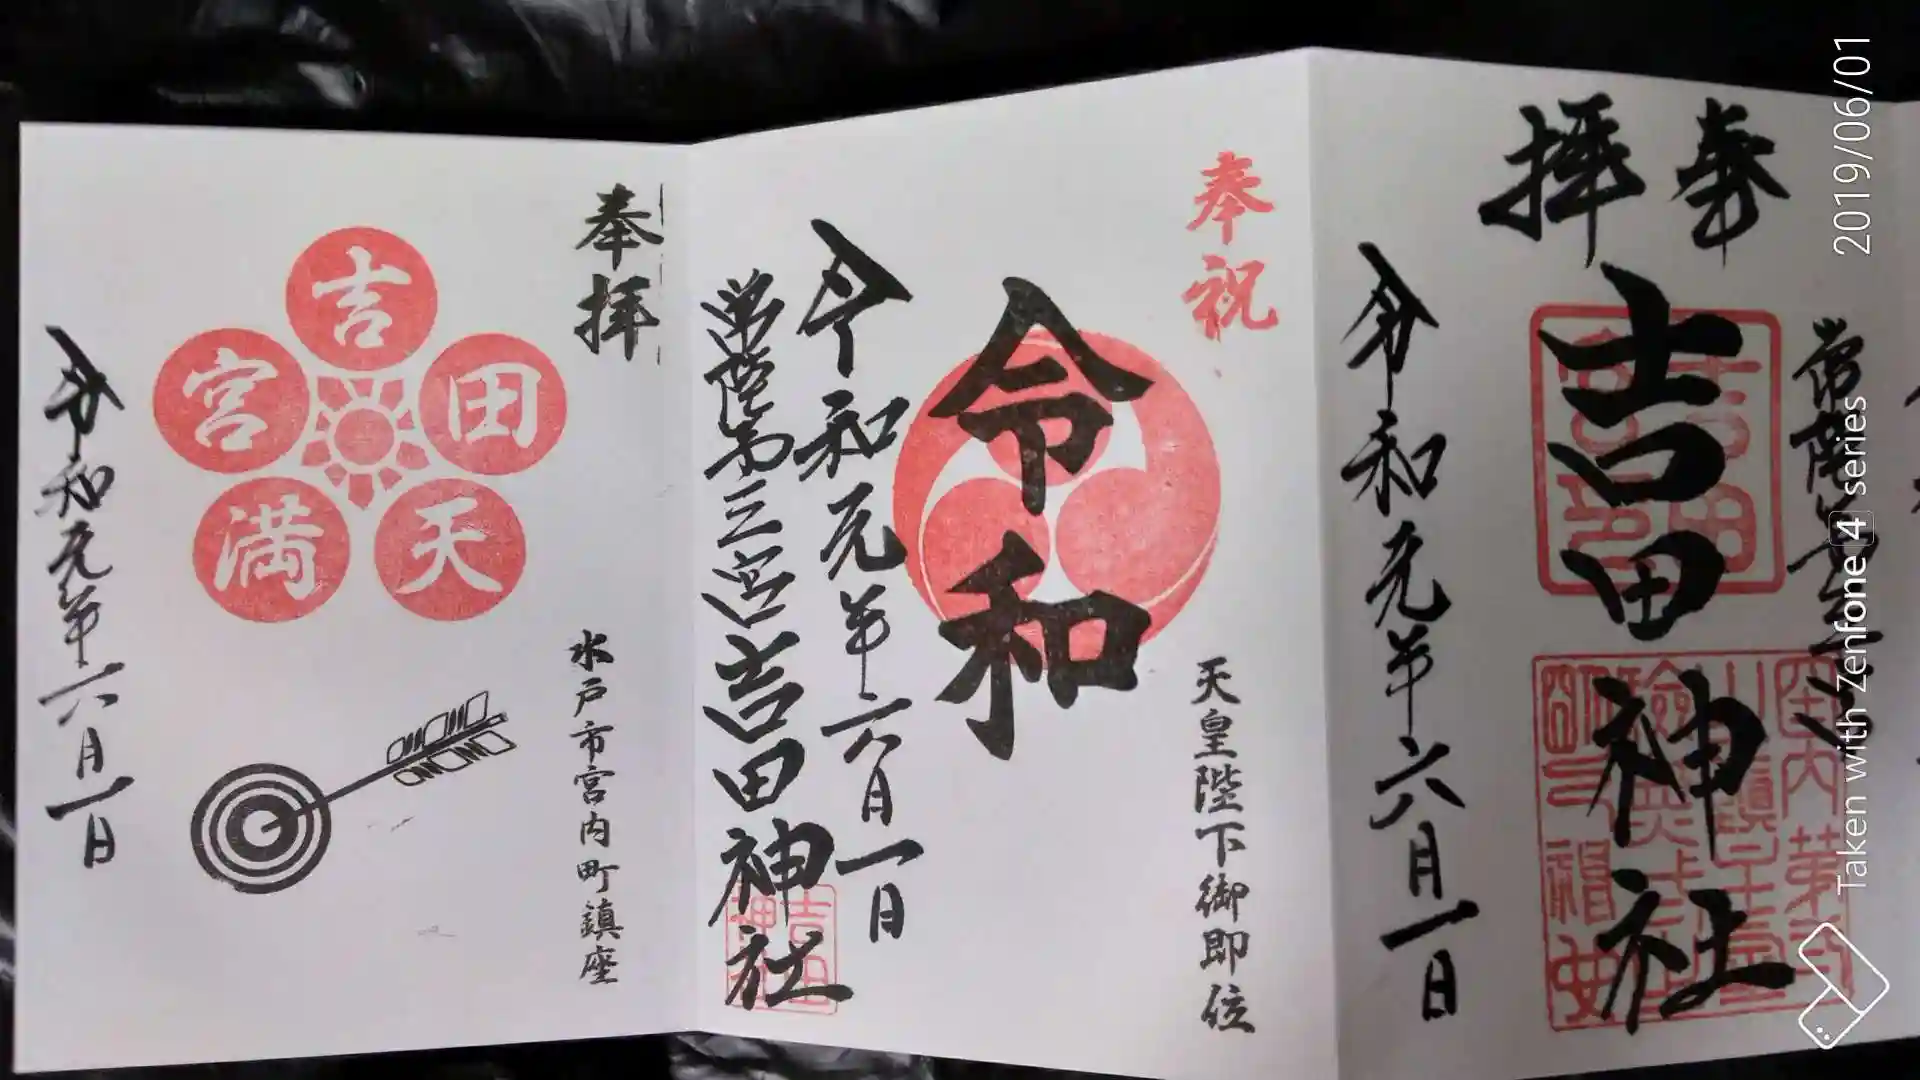 奉拝
常陸第三宮
吉田神社
令和元年六月一日
奉祝
天皇陛下御即位
令和
令和元年六月一日
常陸第三宮吉田神社
奉拝
水戸市宮内町鎮座
吉田天満宮
令和元年六月一日
2019/06/01
Taken with Zenfone 4 series